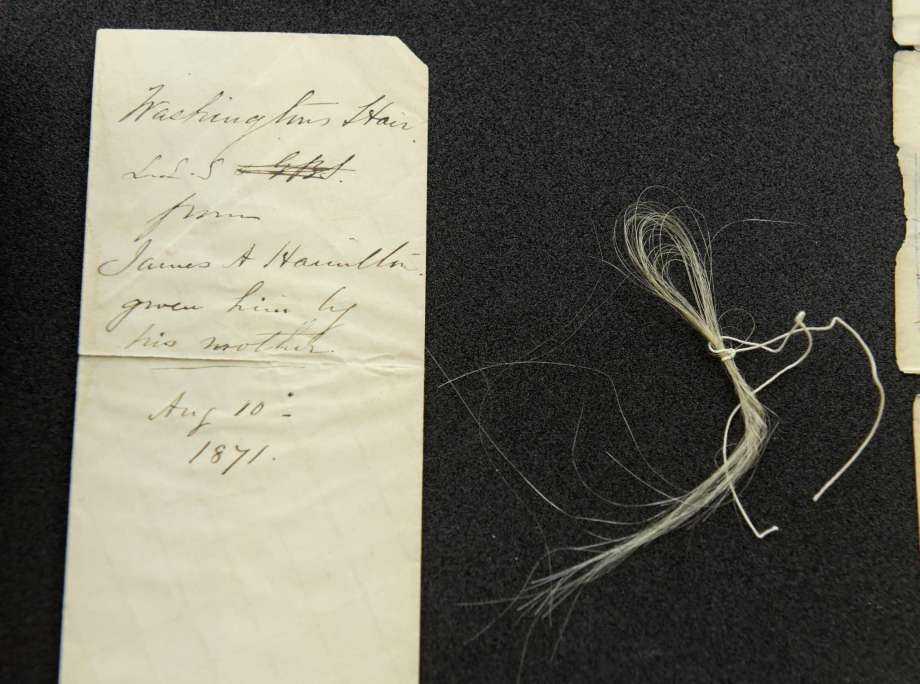 Washington's Hair
L.S.S. G.B.S.
from
James A Hamilton.
given him by
his mother.
Aug 10 -
1871.